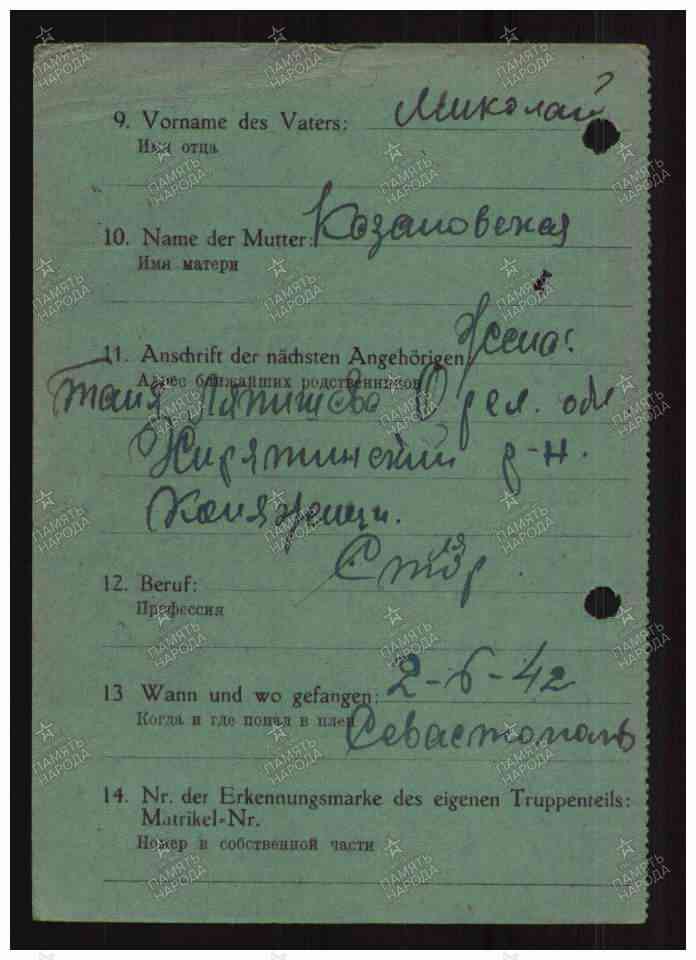 9. Vorname des Vaters: Миколай
Имя отца
10. Name der Mutter: Козановская
Имя матери
11. Anschrift der nächsten Angehörigen Жена:
Адрес ближайших родственников
Таня Ляпишева Орел. обл
Жирятинский р-н.
Столяр
12. Beruf:
Профессия
13 Wann und wo gefangen: 2-6-42
Когда и где попал в плен Севастополь
14. Nr. der Erkennungsmarke des eigenen Truppenteils:
Matrikel-Nr.
Номер в собственной части
ПАМЯТЬ НАРОДА